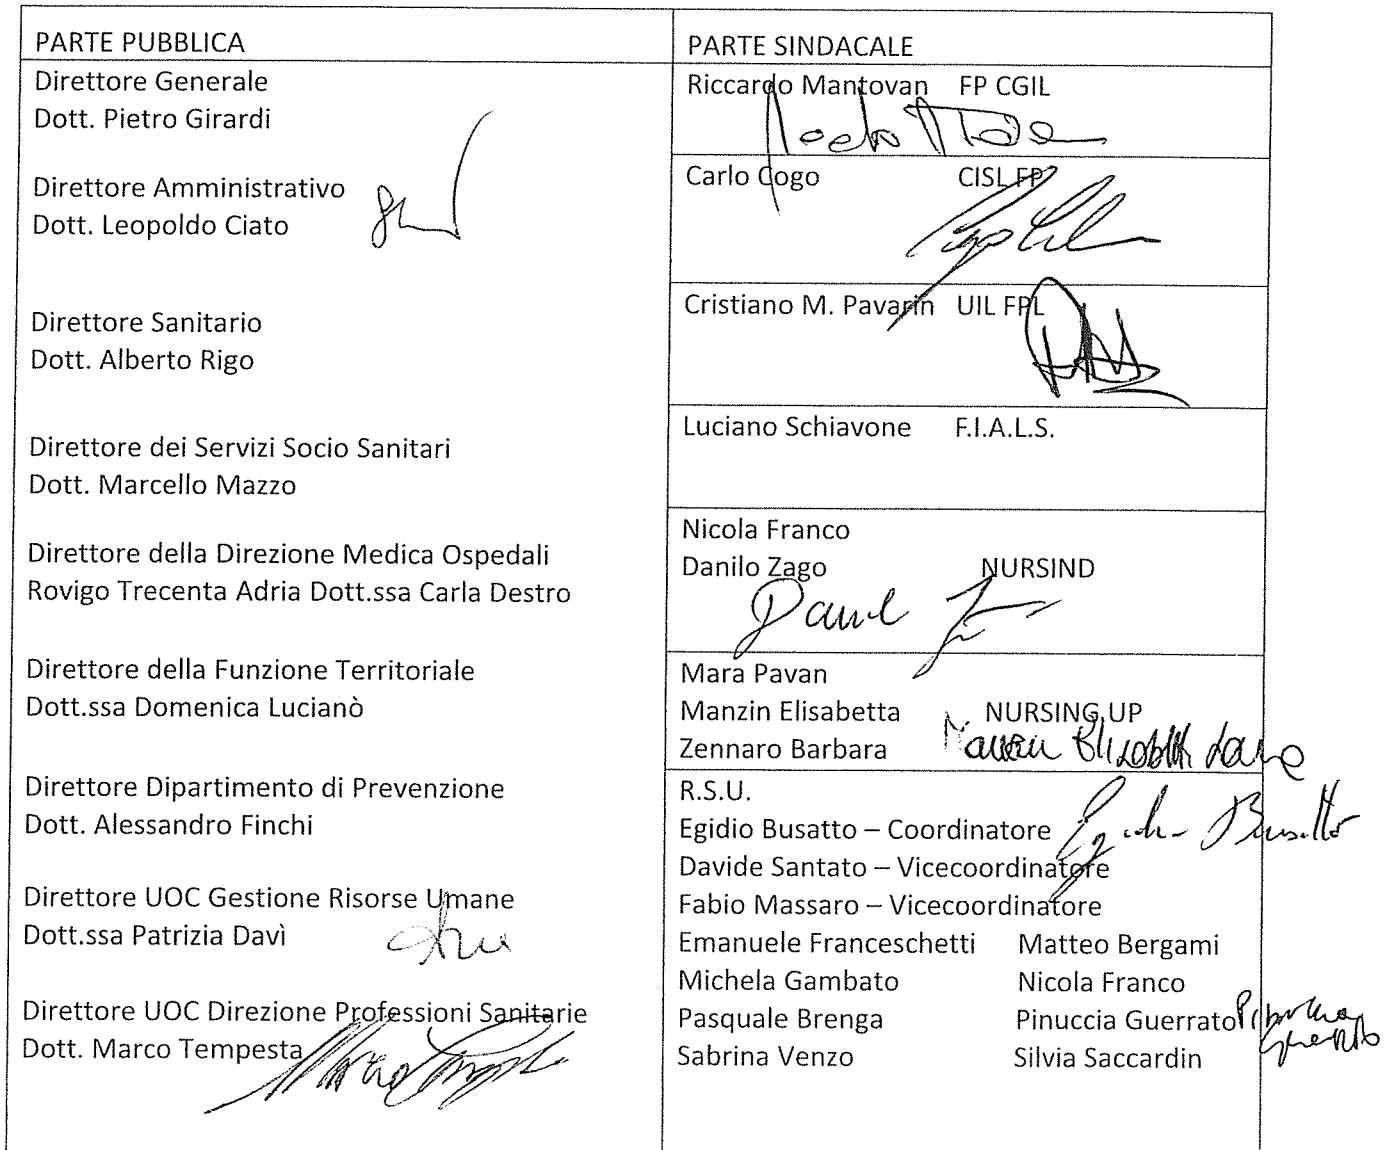 PARTE PUBBLICA
Direttore Generale
Dott. Pietro Girardi
Direttore Amministrativo
Dott. Leopoldo Ciato
Direttore Sanitario
Dott. Alberto Rigo
Direttore dei Servizi Socio Sanitari
Dott. Marcello Mazzo
Direttore della Direzione Medica Ospedali
Rovigo Trecenta Adria Dott.ssa Carla Destro
Direttore della Funzione Territoriale
Dott.ssa Domenica Lucianò
Direttore Dipartimento di Prevenzione
Dott. Alessandro Finchi
Direttore UOC Gestione Risorse Umane
Dott.ssa Patrizia Davì
Direttore UOC Direzione Professioni Sanitarie
Dott. Marco Tempesta
PARTE SINDACALE
Riccardo Mantovan FP CGIL
Carlo Cogo CISL FP
Cristiano M. Pavarin UIL FPL
Luciano Schiavone F.I.A.L.S.
Nicola Franco
Danilo Zago NURSIND
Mara Pavan
Manzin Elisabetta NURSING UP
Zennaro Barbara
R.S.U.
Egidio Busatto – Coordinatore
Egidio Busatto
Davide Santato – Vicecoordinatore
Fabio Massaro – Vicecoordinatore
Emanuele Franceschetti Matteo Bergami
Michela Gambato Nicola Franco
Pasquale Brenga Pinuccia Guerrato
Pinuccia Guerrato
Sabrina Venzo Silvia Saccardin